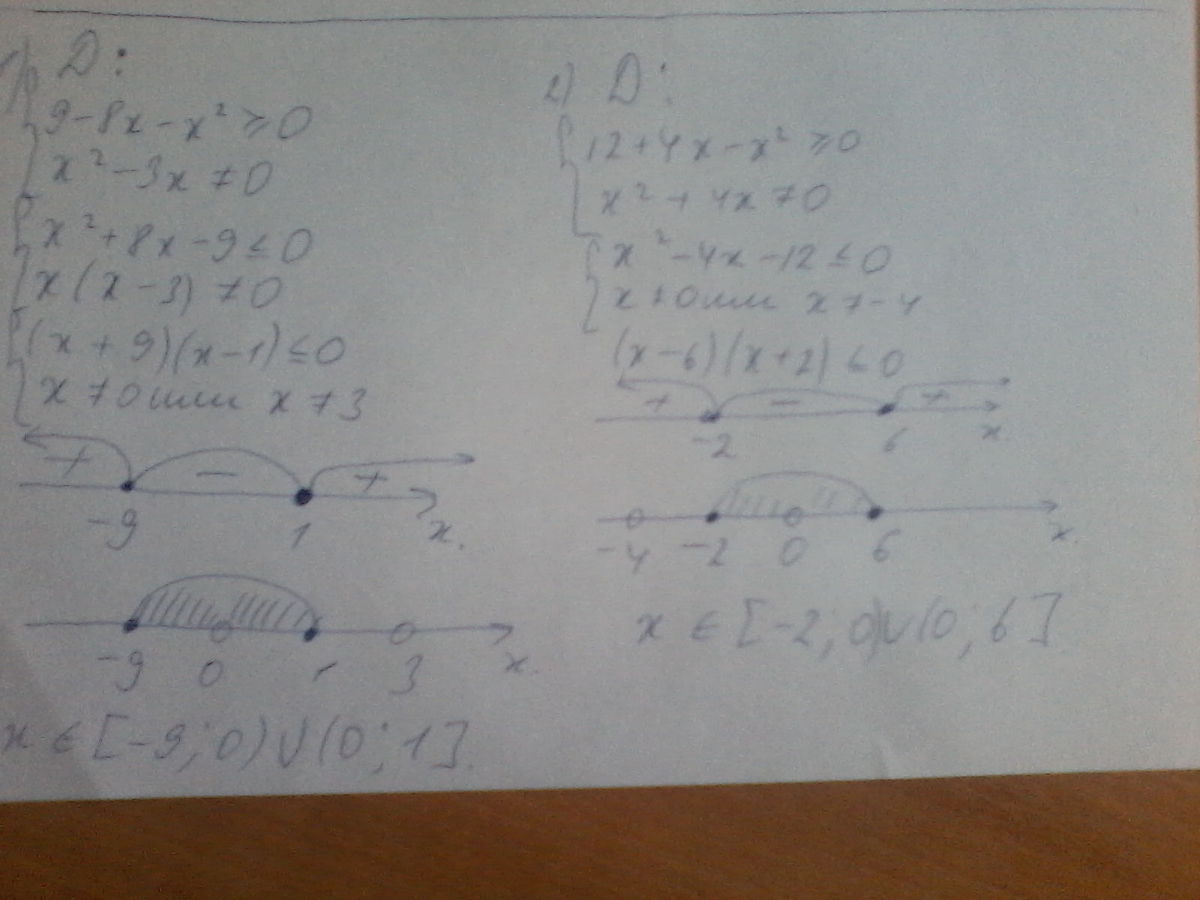 1) D:
9-8x-x² ≥ 0
x²-3x ≠ 0
x²+8x-9 ≤ 0
x(x-3) ≠ 0
(x+9)(x-1) ≤ 0
x ≠ 0 или x ≠ 3
+ − +
-9 1 x.
-9 0 1 3 x.
x ∈ [-9; 0) ∪ (0; 1].
2) D:
12+4x-x² ≥ 0
x²+4x ≠ 0
x²-4x-12 ≤ 0
x ≠ 0 или x ≠ -4
(x-6)(x+2) ≤ 0
+ − +
-2 6 x.
-4 -2 0 6 x.
x ∈ [-2; 0) ∪ (0; 6]